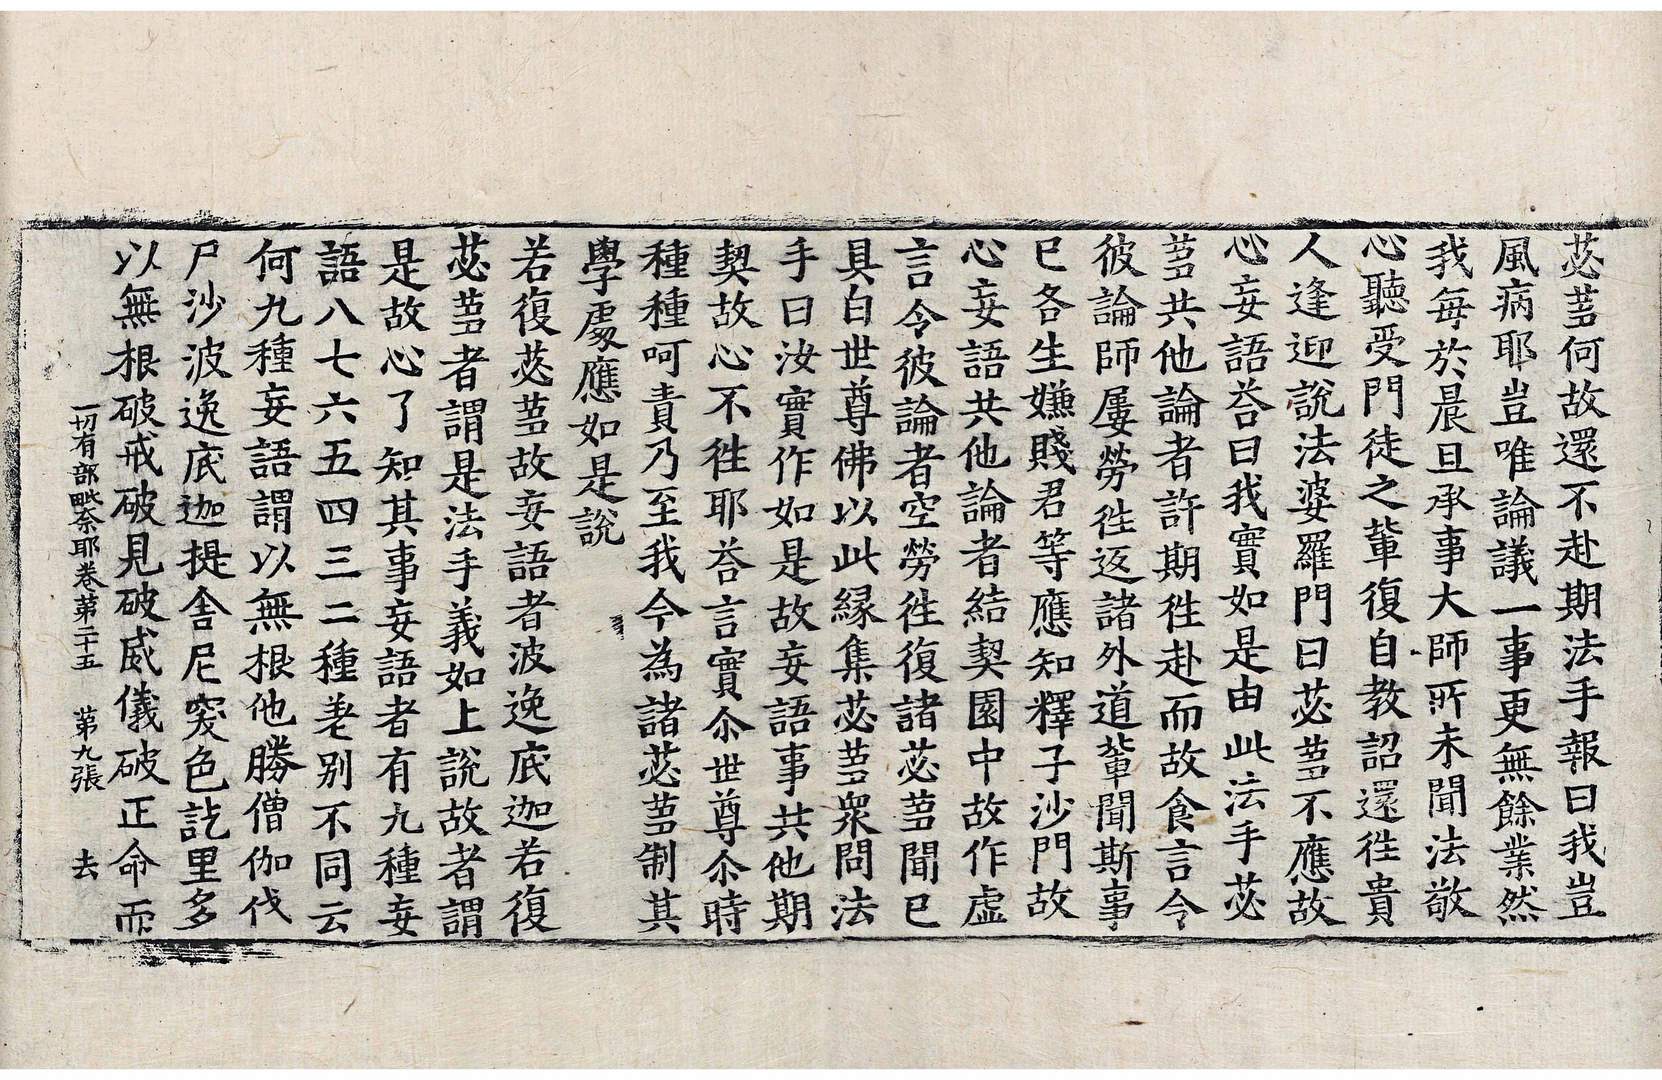 苾芻何故還不赴期法手報曰我豈
風病耶豈唯論議一事更無餘業然
我每於晨旦承事大師所未聞法敬
心聽受門徒之輩復自教詔還徃貴
人逢迎說法婆羅門曰苾芻不應故
心妄語荅曰我實如是由此法手苾
芻共他論者許期徃赴而故食言令
彼論師屢勞徃返諸外道輩聞斯事
已各生嫌賤君等應知釋子沙門故
心妄語共他論者結契園中故作虛
言令彼論者空勞徃復諸苾芻聞已
具白世尊佛以此緣集苾芻衆問法
手曰汝實作如是故妄語事共他期
契故心不徃耶荅言實尒世尊尒時
種種呵責乃至我今為諸苾芻制其
學處應如是說
若復苾芻故妄語者波逸底迦若復
苾芻者謂是法手義如上說故者謂
是故心了知其事妄語者有九種妄
語八七六五四三二種差別不同云
何九種妄語謂以無根他勝僧伽伐
尸沙波逸底迦提舍尼突色訖里多
以無根破戒破見破威儀破正命而
一切有部毗奈耶卷第二十五 第九張 去